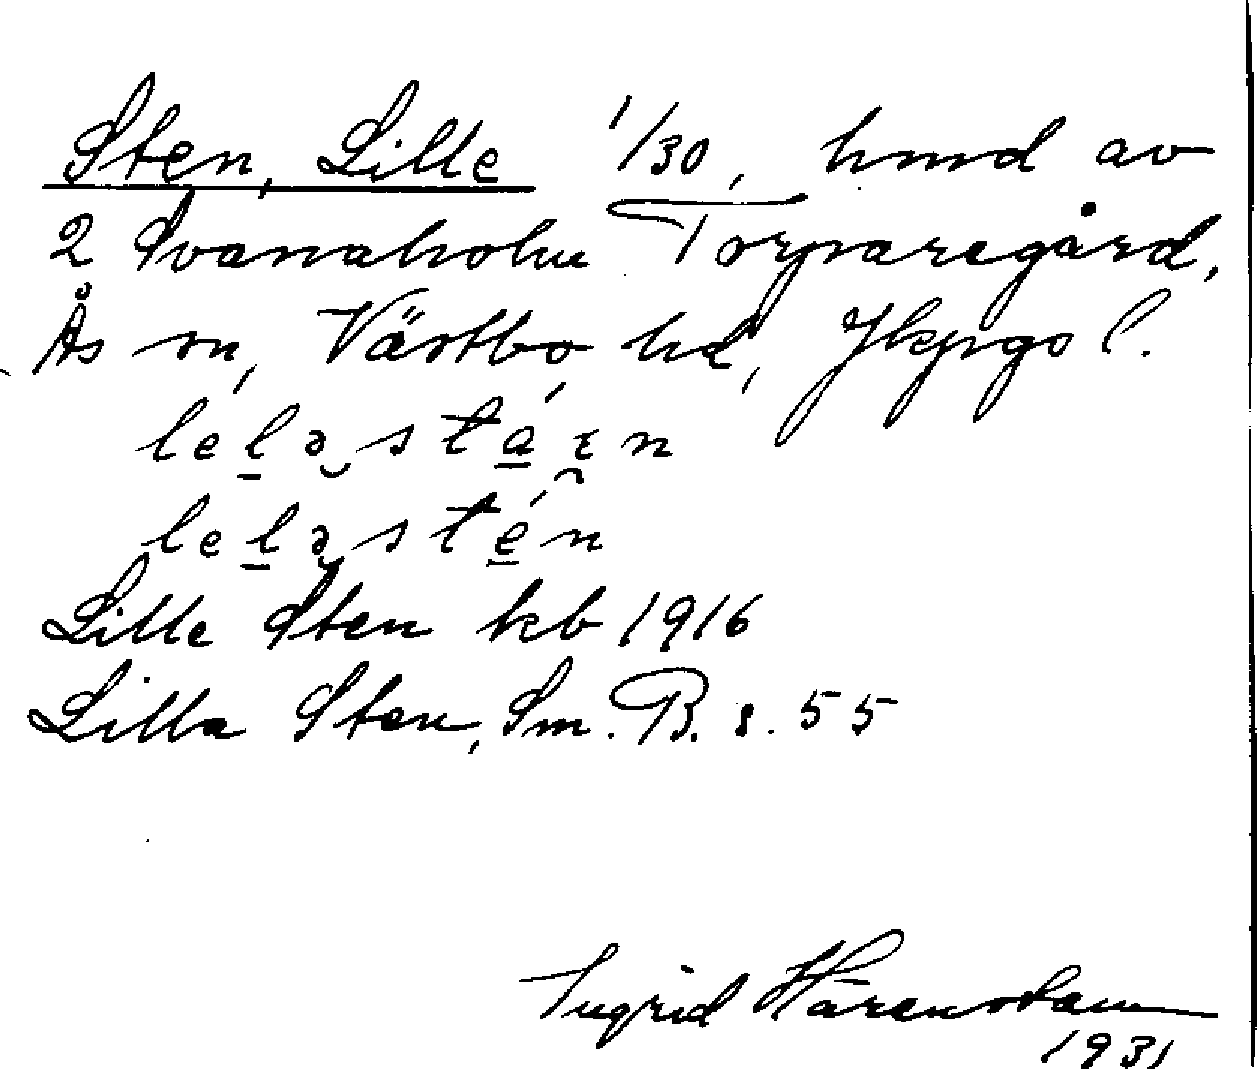 Sten, Lille 1/30, hmd av
2 Svanaholm Torparegård,
Ås sn, Västbo hd, Jkpgs l.
lelǝstáɛn
lelǝstén
Lille Sten kb 1916
Lilla Sten, Sm. B. s. 55
Ingrid Härenstam
1931